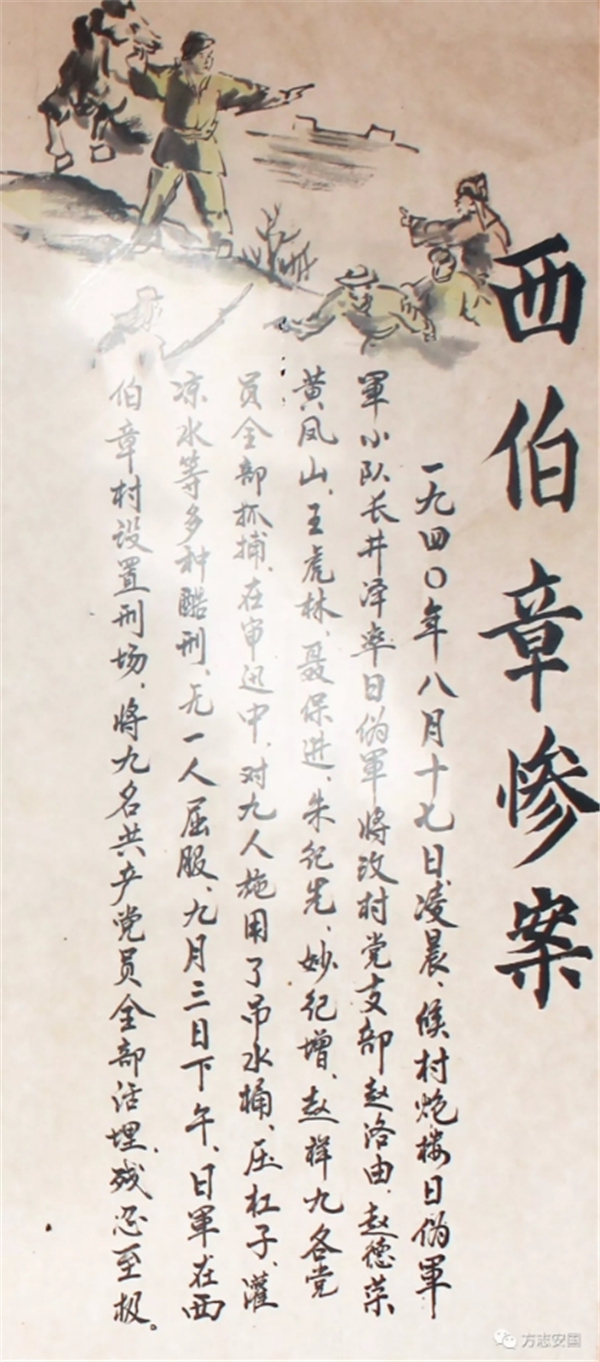 西伯章惨案
一九四〇年八月十七日凌晨、候村炮楼日伪軍
軍小队长井泽率日伪軍将改村党支部赵洛由、赵德荣
黄凤山、王虎林、聂保进、朱纪先、妙纪增、赵祥九各党
员全部抓捕、在审迅中、对九人施用了吊水桶、压杠子、灌
凉水等多种酷刑、无一人屈服、九月三日下午、日軍在西
伯章村设置刑场、将九名共产党员全部活埋、残忍至极。
方志安国